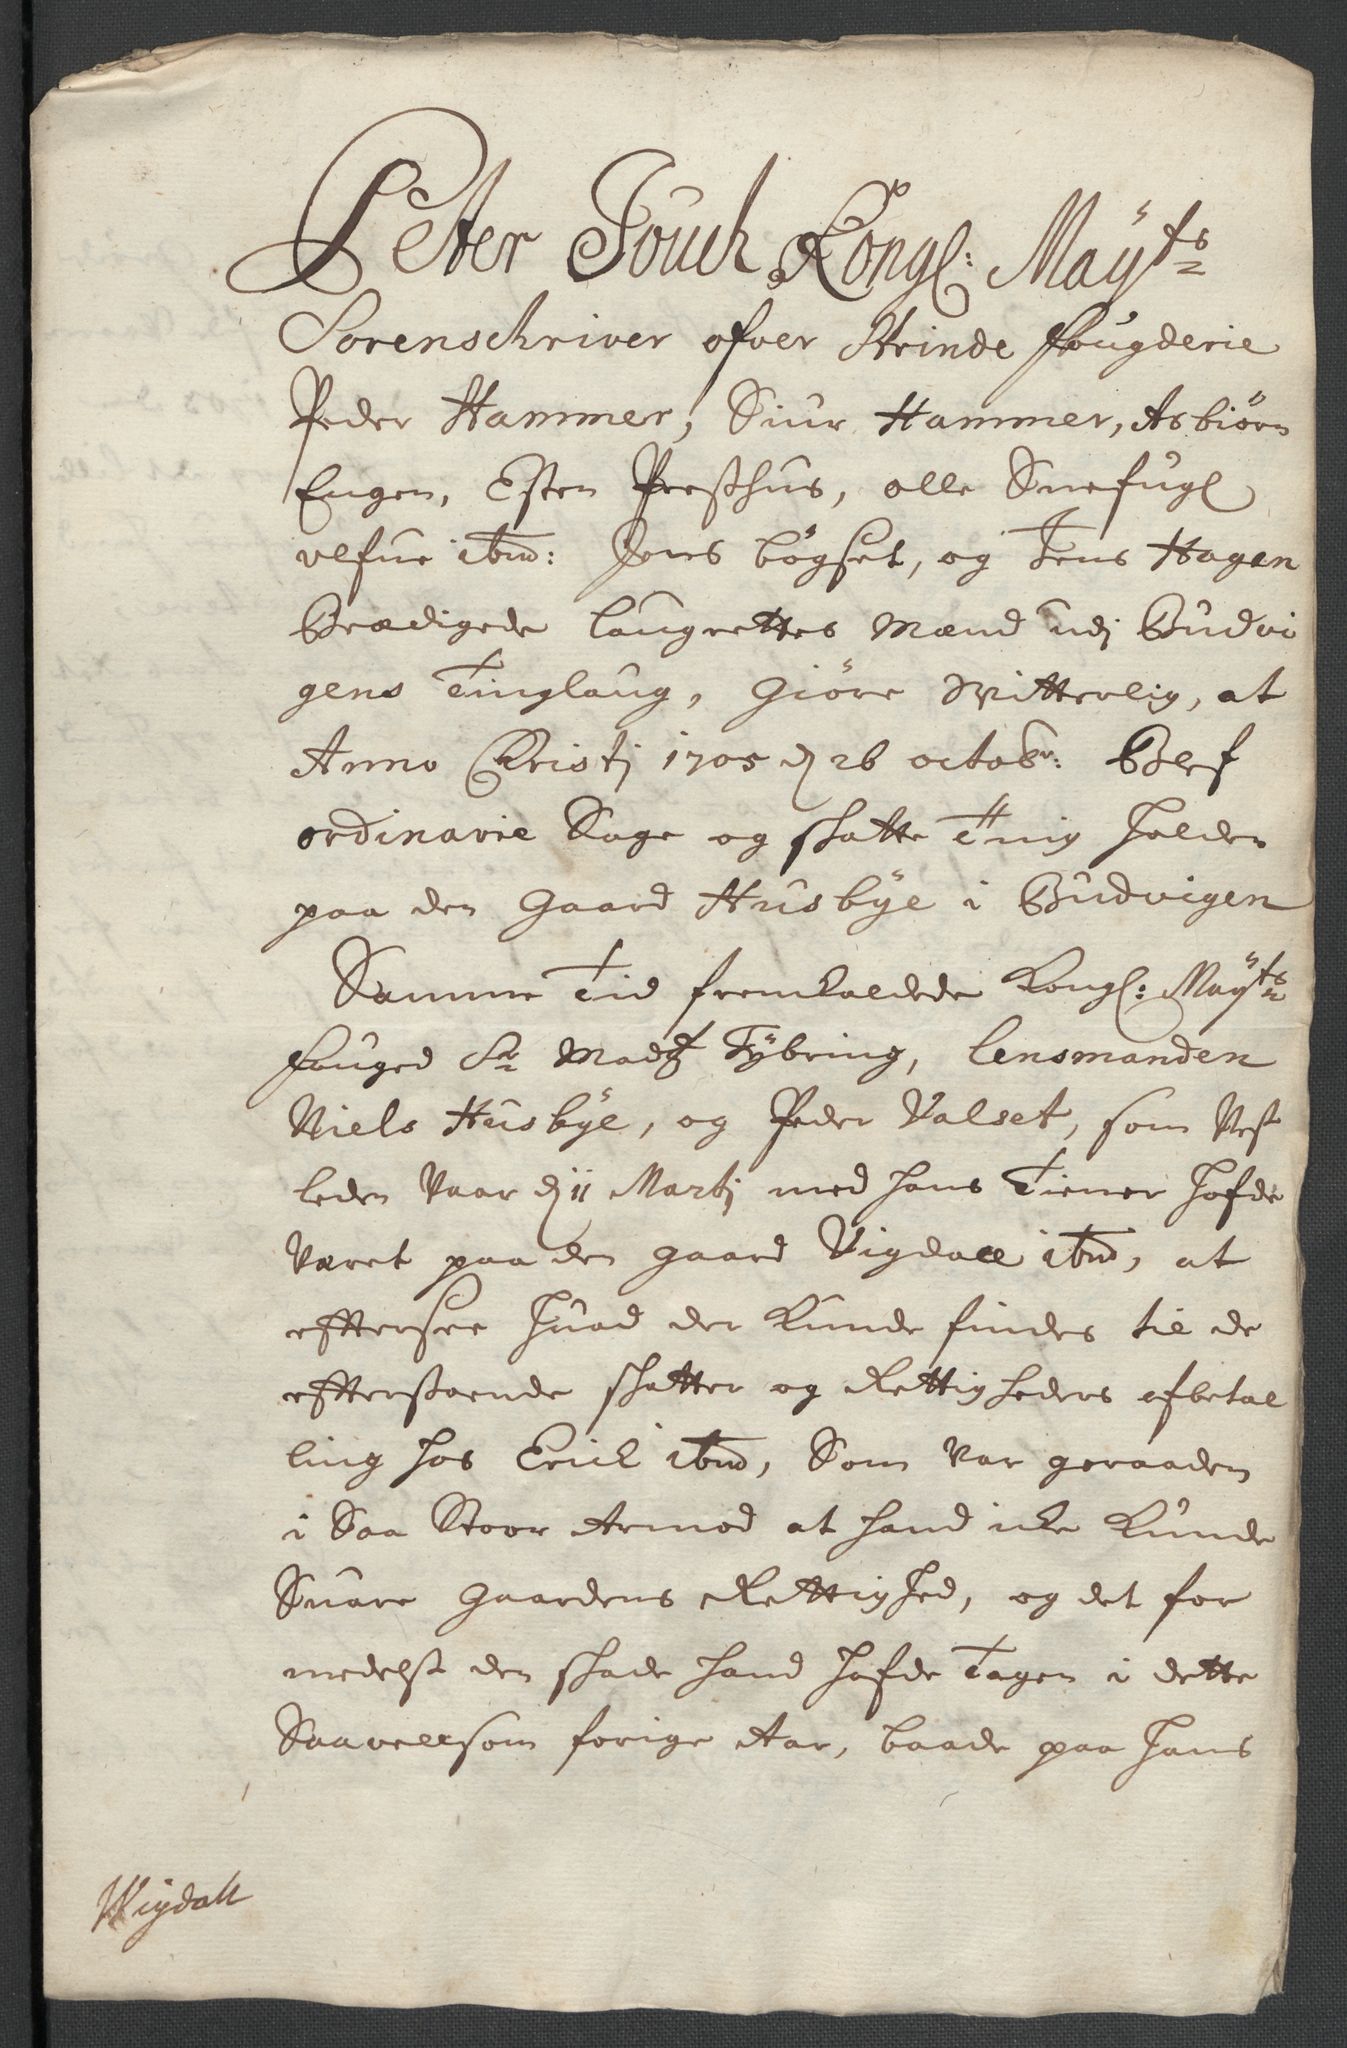 Petter Jouch Kongl: Maÿts
Sorenschriver ofver Strinde fougderie
Peder Hammer, Siur Hammer, Asbiörn
Engen, Esten Presthus, olle Snefugl
Jens bögset, og Jens Hagen
Bædigede laugrettes Mænd udj Budvi
gens Tinglaug, Giöre Vitterlig, at
Anno Christj 1705 d 26 octobr: Blef
ordinarie Sage og skatte Ting holden
paa den gaard Husbÿe i Budvigen
Samme Tid fremkaldede Kongl: Maÿts
fouged Sr Madz Tÿbring, lensmanden
Niels Husbÿe, og Peder Valset, som Nest
leden Vaar d 11 Martj med hans Tiener hafde
Været paa den gaard Vigdall ibm, at
effttersee huad der Kunde findes til de
effterstaaende skatter og Rettigheders afbetal
ling hos Erick ibm, Som var geraaden
i Saa Stoor Armod at hand icke Kunde
Suare gaardens Rettighed, og det for
medelst den skade hand hafde Tagen i dette
Saavellsom forige Aar, baade paa hans
Wigdall